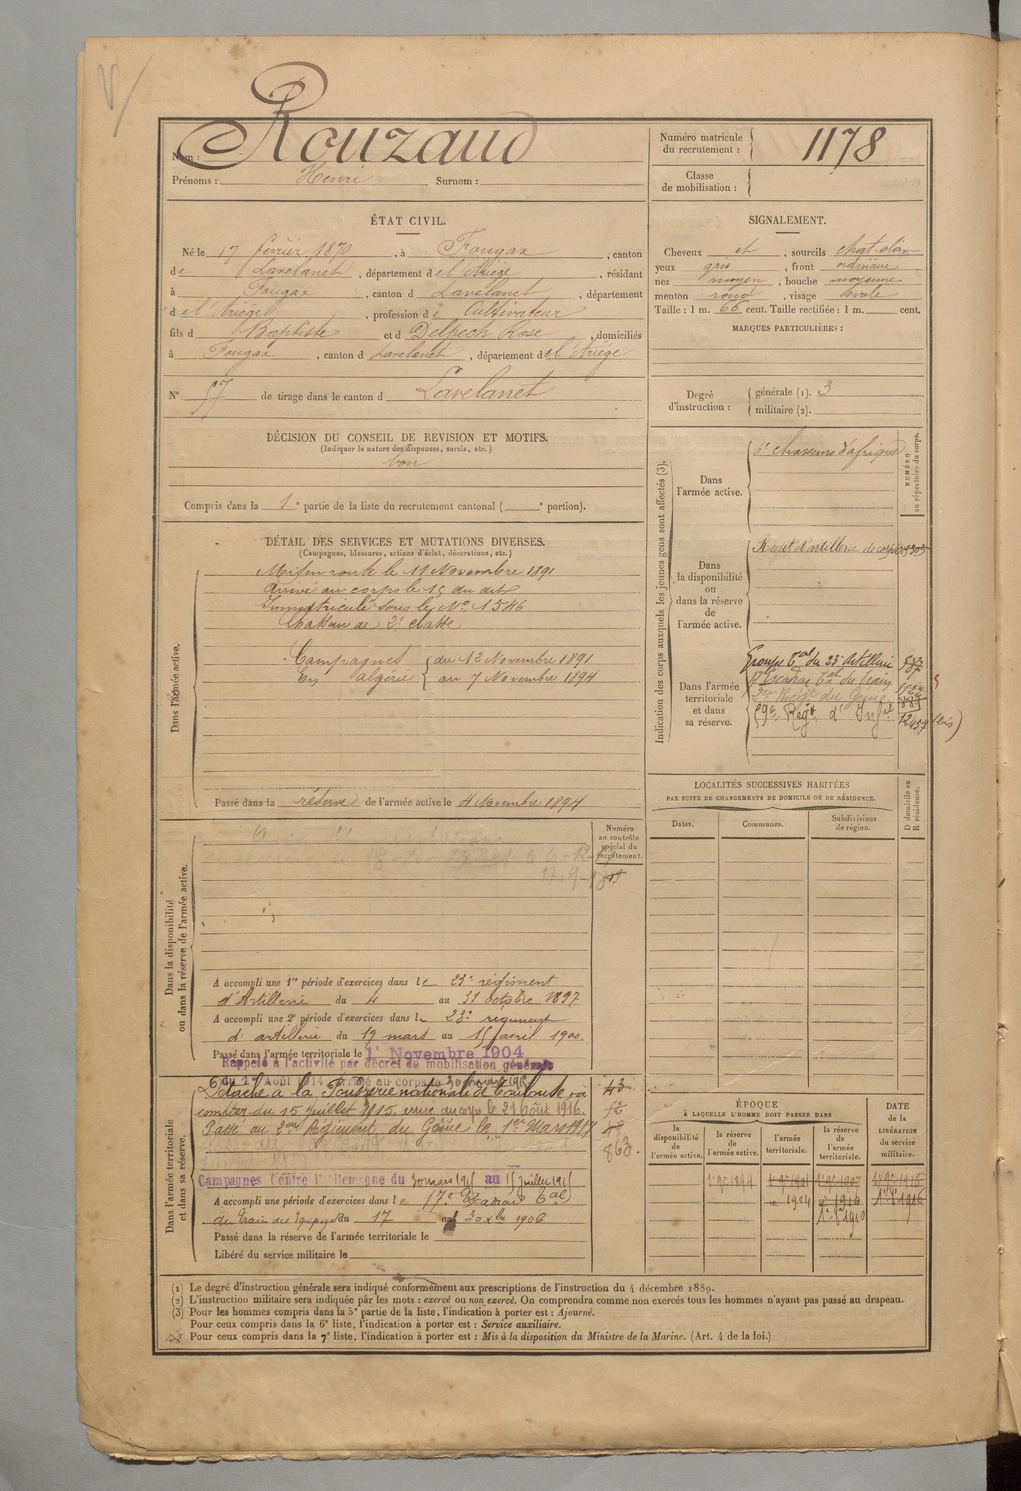 Nom : Rouzaud
Prénoms : Henri Surnom :
Numéro matricule
du recrutement : 1178
Classe
de mobilisation :
ÉTAT CIVIL.
Né le 17 février 1870, à Fougax, canton
de Lavelanet, département de l'Ariège, résidant
à Fougax, canton d Lavelanet, département
d el'Ariège, profession d e Cultivateur
fils d Baptiste et d Delpech Rose, domiciliés
à Fougax, canton d Lavelanet, département de l'Ariège
N° 57 de tirage dans le canton d Lavelanet
SIGNALEMENT.
Cheveux et, sourcils chat. clair
yeux gris, front ordinaire
nez moyen, bouche moyenne
menton rond, visage ovale
Taille : 1 m. 66 cent. Taille rectifiée : 1 m. cent.
MARQUES PARTICULIÈRES :
Degré
d'instruction :
générale (1). 3
militaire (2).
DÉCISION DU CONSEIL DE REVISION ET MOTIFS.
(Indiquer la nature des dispenses, sursis, etc.)
bon
Compris dans la 1e partie de la liste du recrutement cantonal ( e portion).
DÉTAIL DES SERVICES ET MUTATIONS DIVERSES.
(Campagnes, blessures, actions d'éclat, décorations, etc.)
Dans l'armée active.
Mis en route le 11 Novembre 1891
Arrivé au corps le 15 du dit
Immatriculé sous le No 1546
Chasseur de 2e classe
Campagnes du 13 Novembre 1891
En algérie au 7 Novembre 1894
Passé dans la réserve de l'armée active le 1 Novembre 1894
Indication des corps auxquels les jeunes gens sont affectés (3).
NUMÉRO
au répertoire du corps.
Dans
l'armée active.
6e chasseurs d'afrique
Dans
la disponibilité
ou
dans la réserve
de
l'armée active.
Regt d'artillerie de corps
Dans l'armée
territoriale
et dans
sa réserve.
Groupe Tal du 23e Artillerie
17 Escadron Tal du train
2me Regt du Génie
59e Regt d'Infie
LOCALITÉS SUCCESSIVES HABITÉES
PAR SUITE DE CHANGEMENTS DE DOMICILE OU DE RÉSIDENCE.
Dates.
Communes.
Subdivisions
de région.
D domicile ou
R résidence.
Dans la disponibilité
ou dans la réserve de l'armée active.
Numéro
au contrôle
spécial du
recrutement.
A accompli une 1re période d'exercices dans le 23e régiment
d'Artillerie du 4 au 31 octobre 1897
A accompli une 2e période d'exercices dans l e 23e regiment
d'artillerie du 19 mars au 15 avril 1900.
Passé dans l'armée territoriale le 1er Novembre 1904
Rappelé à l'activité par décret de mobilisation générale
du 1er Août 1914. Arrivé au corps le
Dans l'armée territoriale
et dans sa réserve.
Détaché à la Poudrerie nationale de Toulouse à
compter du 15 juillet 1915, venu au corps le 21 Août 1916.
Passé au 2me Régiment du Génie le 1er Mars 1917
43
52
863
Campagnes Contre l'Allemagne du 30 mars 1915 au 15 juillet 1915
A accompli une période d'exercices dans le 17e Escadron Tal
du Train des Equipages du 17 au 30 Xbre 1906
Passé dans la réserve de l'armée territoriale le
Libéré du service militaire le
ÉPOQUE
À LAQUELLE L'HOMME DOIT PASSER DANS
DATE
de la
LIBÉRATION
du service
militaire.
la
disponibilité
de
l'armée active.
la réserve
de
l'armée active.
l'armée
territoriale.
la réserve
de
l'armée
territoriale.
1er 9bre 1894
1904
1910
1916
(1) Le degré d'instruction générale sera indiqué conformément aux prescriptions de l'instruction du 4 décembre 1889.
(2) L'instruction militaire sera indiquée par les mots : exercé ou non exercé. On comprendra comme non exercés tous les hommes n'ayant pas passé au drapeau.
(3) Pour les hommes compris dans la 5e partie de la liste, l'indication à porter est : Ajourné.
Pour ceux compris dans la 6e liste, l'indication à porter est : Service auxiliaire.
Pour ceux compris dans la 7e liste, l'indication à porter est : Mis à la disposition du Ministre de la Marine. (Art. 4 de la loi.)